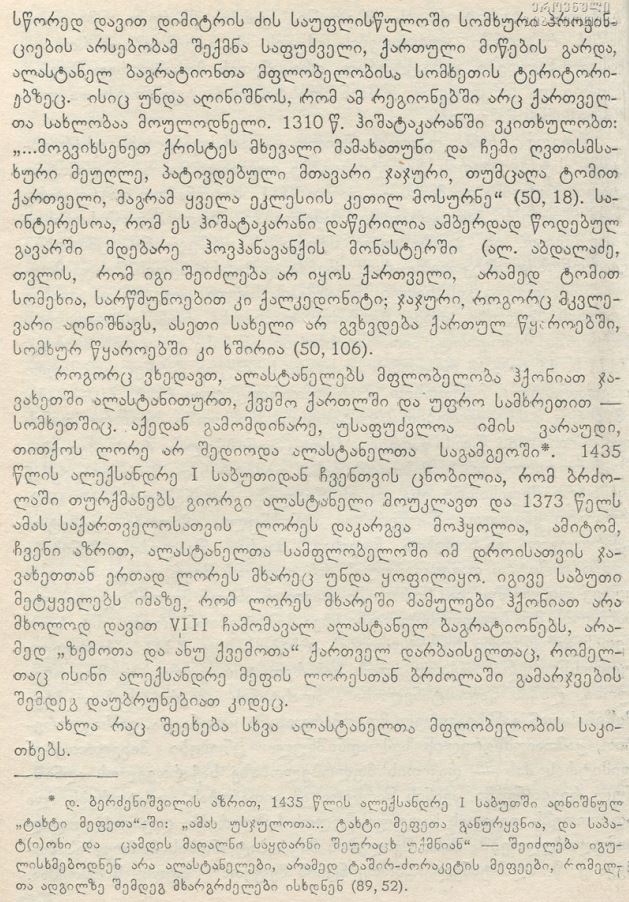 ეროვნული
ბიბლიოთეკა
სწორედ დავით დიმიტრის ძის საუფლისწულოში სომხური პროვინ-
ციების არსებობამ შექმნა საფუძველი, ქართული მიწების გარდა,
ალასტანელ ბაგრატიონთა მფლობელობისა სომხეთის ტერიტორი-
ებზეც. ისიც უნდა აღინიშნოს, რომ ამ რეგიონებში არც ქართველ-
თა სახლობაა მოულოდნელი. 1310 წ. ჰიშატაკარანში ვკითხულობთ:
„...მოგვიხსენეთ ქრისტეს მხევალი მამახათუნი და ჩემი ღვთისმსა-
ხური მეუღლე, პატივდებული მთავარი ჯაჯური, თუმცაღა ტომით
ქართველი, მაგრამ ყველა ეკლესიის კეთილ მოსურნე“ (50, 18). სა-
ინტერესოა, რომ ეს ჰიშატაკარანი დაწერილია ამბერდად წოდებულ
გავარში მდებარე ჰოვჰანავანქის მონასტერში (ალ. აბდალაძე,
თვლის, რომ იგი შეიძლება არ იყოს ქართველი, არამედ ტომით
სომეხია, სარწმუნოებით კი ქალკედონიტი; ჯაჯური, როგორც მკვლე-
ვარი აღნიშნავს, ასეთი სახელი არ გვხვდება ქართულ წყაროებში,
სომხურ წყაროებში კი ხშირია (50, 106).
როგორც ვხედავთ, ალასტანელებს მფლობელობა ჰქონიათ ჯა-
ვახეთში ალასტანითურთ, ქვემო ქართლში და უფრო სამხრეთით —
სომხეთშიც. აქედან გამომდინარე, უსაფუძვლოა იმის ვარაუდი,
თითქოს ლორე არ შედიოდა ალასტანელთა საგამგეოში*. 1435
წლის ალექსანდრე I საბუთიდან ჩვენთვის ცნობილია, რომ ბრძო-
ლაში თურქმანებს გიორგი ალასტანელი მოუკლავთ და 1373 წელს
ამას საქართველოსათვის ლორეს დაკარგვა მოჰყოლია, ამიტომ,
ჩვენი აზრით, ალასტანელთა სამფლობელოში იმ დროისათვის ჯა-
ვახეთთან ერთად ლორეს მხარეც უნდა ყოფილიყო. იგივე საბუთი
მეტყველებს იმაზე, რომ ლორეს მხარეში მამულები ჰქონიათ არა
მხოლოდ დავით VIII ჩამომავალ ალასტანელ ბაგრატიონებს, არა-
მედ „ზემოთა და ანუ ქვემოთა“ ქართველ დარბაისელთაც, რომელ-
თაც ისინი ალექსანდრე მეფის ლორესთან ბრძოლაში გამარჯვების
შემდეგ დაუბრუნებიათ კიდეც.
ახლა რაც შეეხება სხვა ალასტანელთა მფლობელობის საკი-
თხებს.
* დ. ბერძენიშვილის აზრით, 1435 წლის ალექსანდრე I საბუთში აღნიშნულ
„ტახტი მეფეთა“-ში: „ამას უსჯულოთა... ტახტი მეფეთა განურყვნია, და საპა-
ტ(ი)ოხი და ცამდის მადალნი საყდარნი შეურაცხ უქმნიან“ — შეიძლება იგუ-
ლისხმებოდნენ არა ალასტანელები, არამედ ტაშირ-ძორაკეტის მეფეები, რომელ-
თა ადგილზე შემდეგ მხარგრძელები ისხდნენ (89, 52).